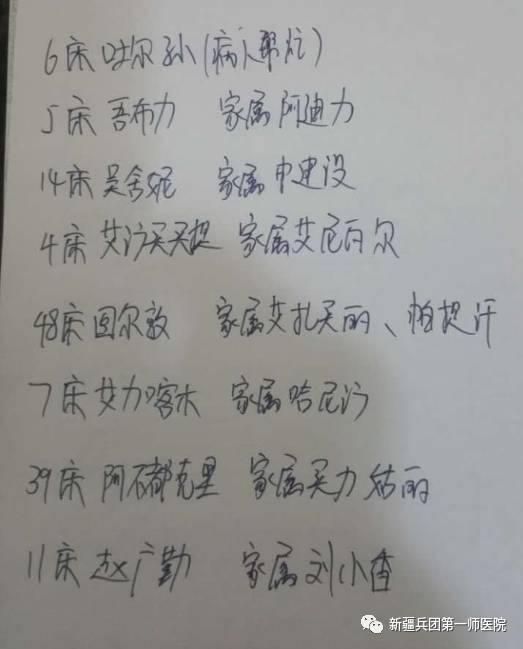 6床吐尔孙(病人帮忙)
5床吾布力 家属阿迪力
14床吴舍妮 家属申建设
4床艾沙买买提 家属艾尼瓦尔
48床图尔敦 家属艾扎买丽、帕提汗
7床艾力喀木 家属哈尼沙
39床阿不都克里 家属买力姑丽
11床赵广勤 家属刘小香
新疆兵团第一师医院